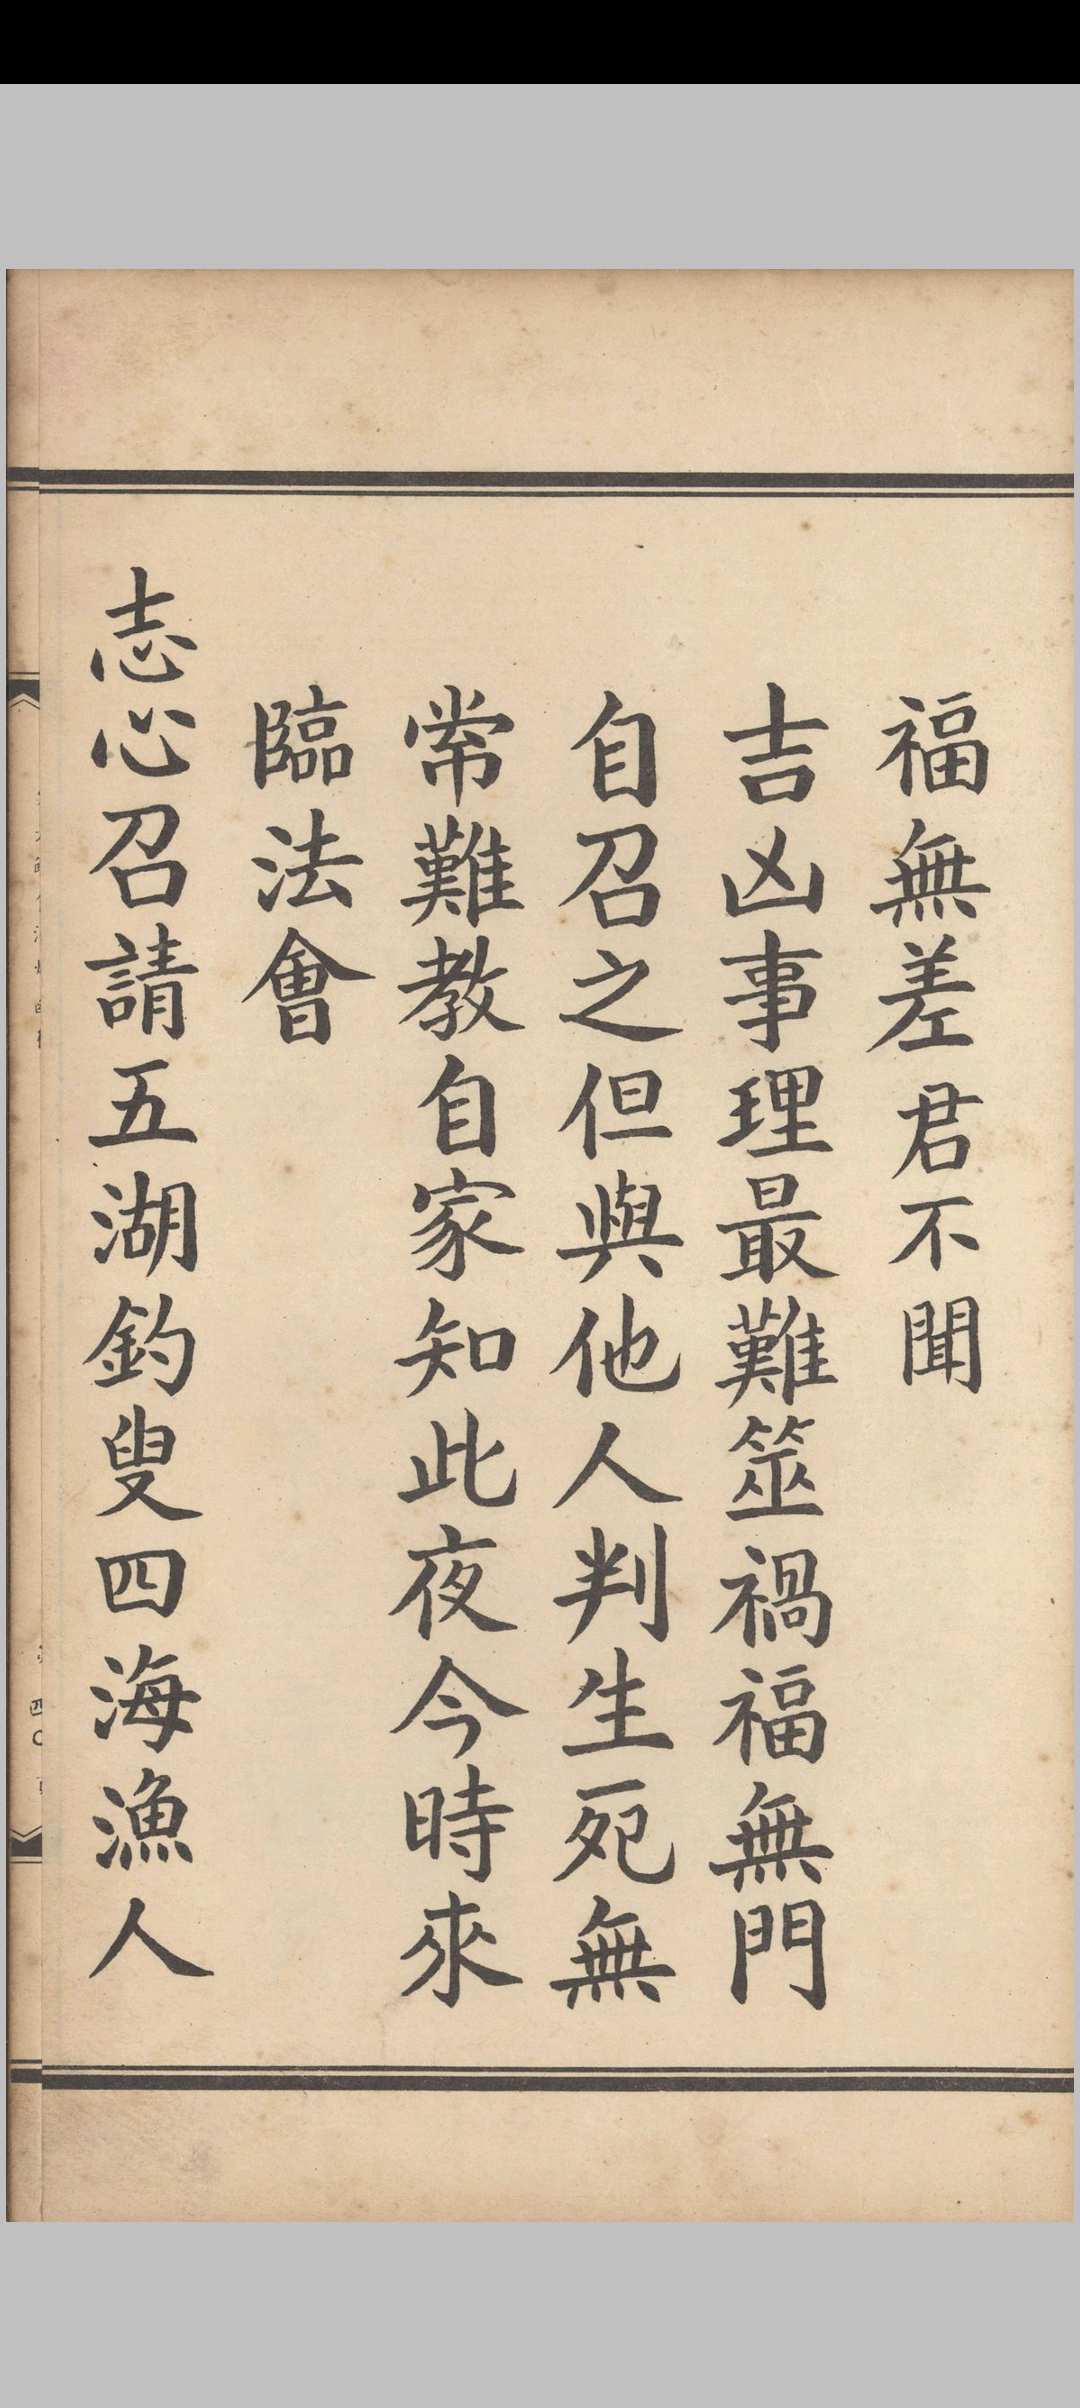 福無差君不聞
吉凶事理最難筮禍福無門
自召之但與他人判生死無
常難教自家知此夜今時來
臨法會
志心召請五湖釣叟四海漁人
四〇